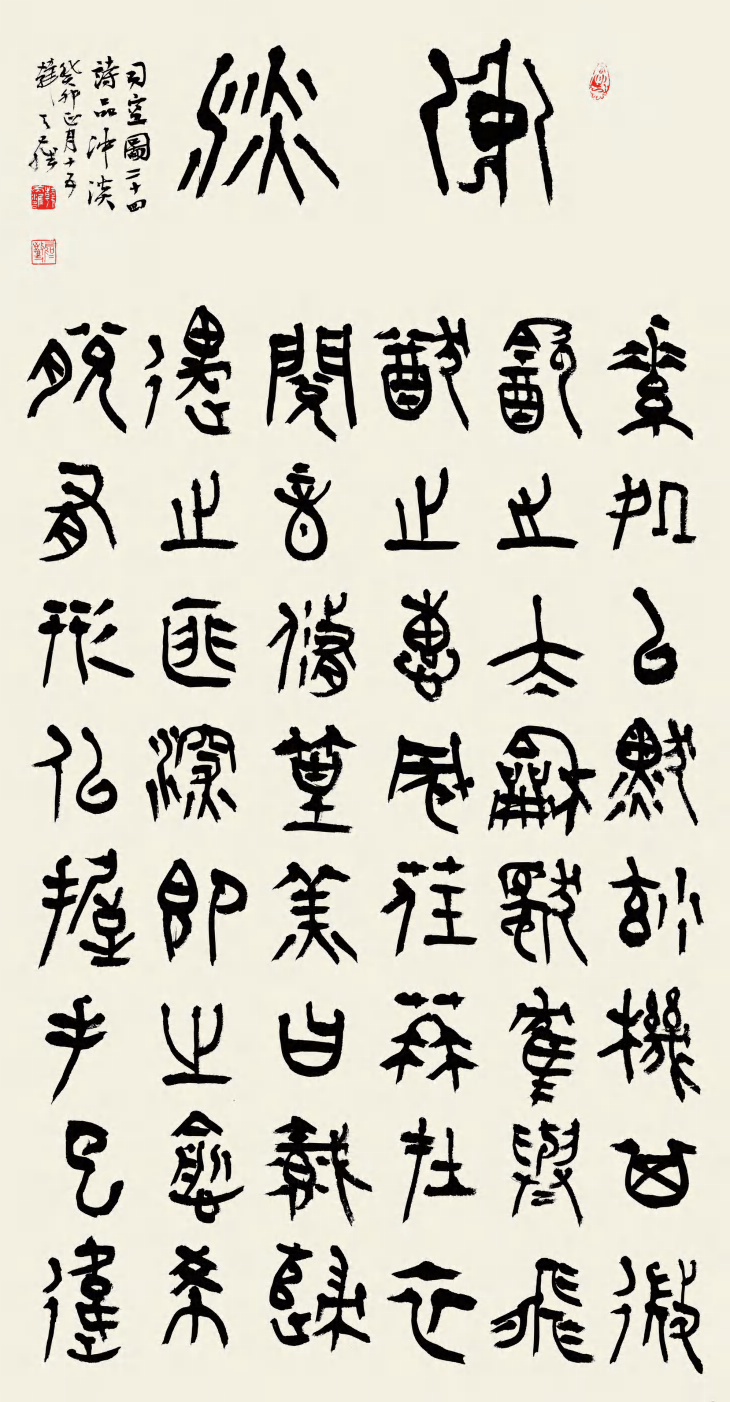 沖淡
素處以默妙機其微
飲之太和獨鶴與飛
猶之惠風荏苒在衣
閱音修篁美曰載歸
遇之匪深即之愈希
脫有形似握手已違
司空圖二十四
詩品沖淡
癸卯正月十五
韓天雍